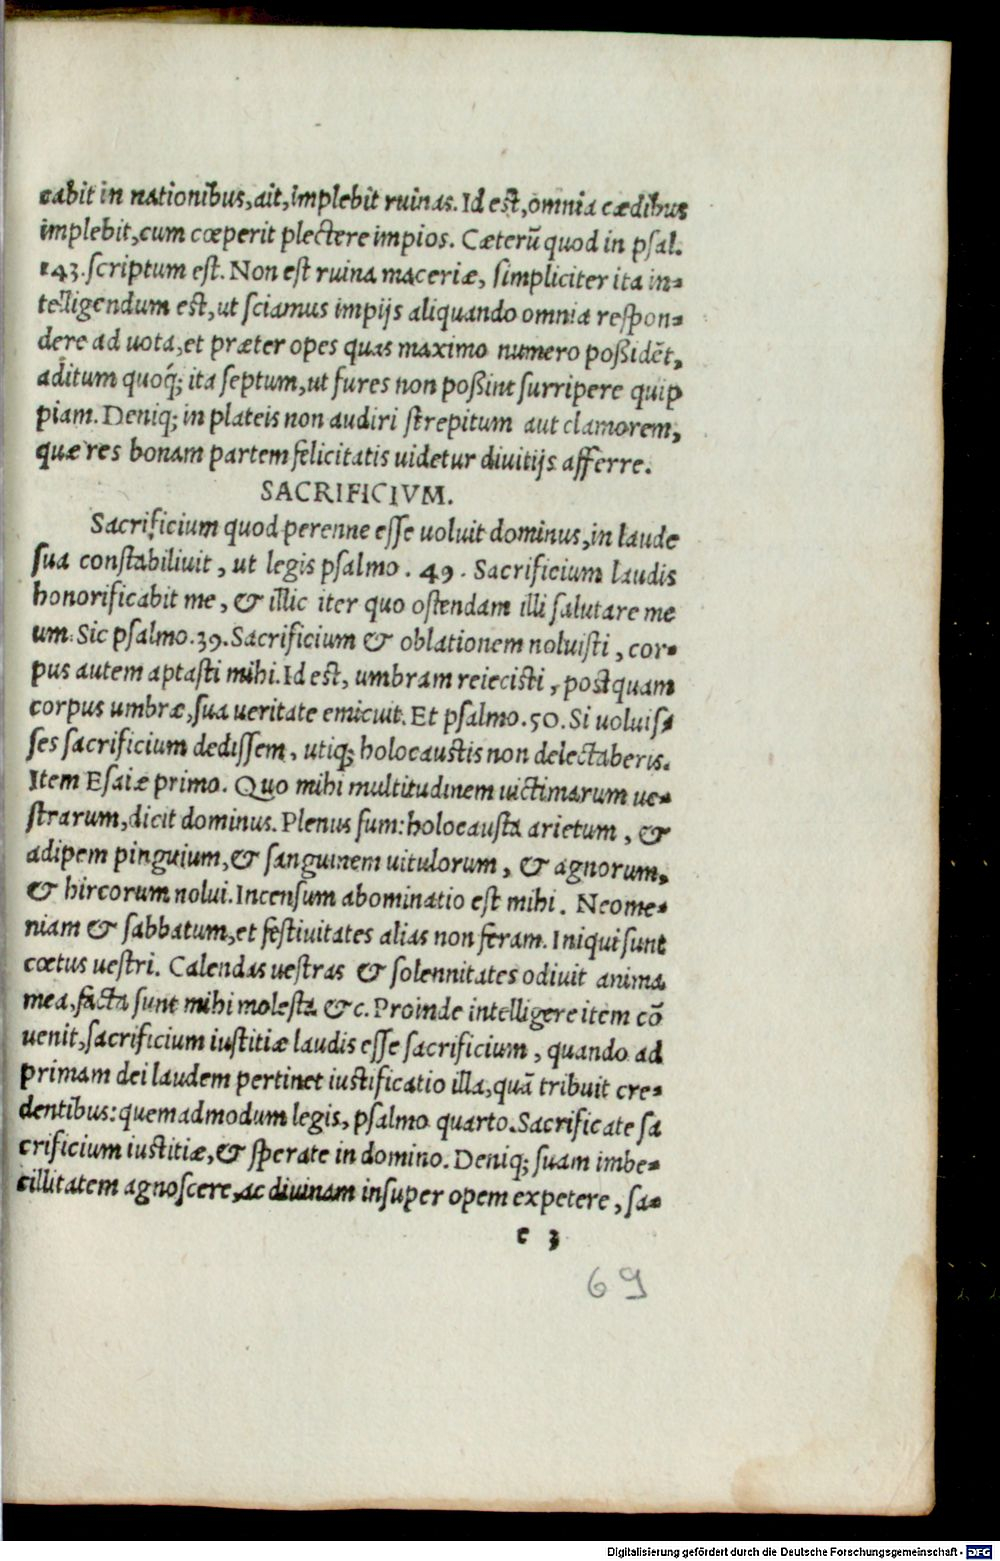 cabit in nationibus, ait, implebit ruinas. Id est, omnia cædibus
implebit, cum cœperit plectere impios. Cæterũ quod in psal.
143. scriptum est. Non est ruina maceriæ, simpliciter ita in-
telligendum est, ut sciamus impijs aliquando omnia respon-
dere ad uota, et præter opes quas maximo numero poßidẽt,
aditum quoq́; ita septum, ut fures non poßint surripere quip
piam. Deniq; in plateis non audiri strepitum aut clamorem,
quæ res bonam partem felicitatis uidetur diuitijs afferre.
SACRIFICIVM.
Sacrificium quod perenne esse uoluit dominus, in laude
sua constabiliuit, ut legis psalmo. 49. Sacrificium laudis
honorificabit me, & illic iter quo ostendam illi salutare me
um. Sic psalmo. 39. Sacrificium & oblationem noluisti, cor-
pus autem aptasti mihi. Id est, umbram reiecisti, postquam
corpus umbræ, sua ueritate emicuit. Et psalmo. 50. Si uoluis-
ses sacrificium dedissem, utiq; holocaustis non delectaberis.
Item Esaiæ primo. Quo mihi multitudinem uictimarum ue-
strarum, dicit dominus. Plenus sum: holocausta arietum, &
adipem pinguium, & sanguinem uitulorum, & agnorum,
& hircorum nolui. Incensum abominatio est mihi. Neome-
niam & sabbatum, et festiuitates alias non feram. Iniqui sunt
cœtus uestri. Calendas uestras & solennitates odiuit anima
mea, facta sunt mihi molesta &c. Proinde intelligere item cō
uenit, sacrificium iustitiæ laudis esse sacrificium, quando ad
primam dei laudem pertinet iustificatio illa, quā tribuit cre-
dentibus: quemadmodum legis, psalmo quarto. Sacrificate sa
crificium iustitiæ, & sperate in domino. Deniq; suam imbe-
cillitatem agnoscere, ac diuinam insuper opem expetere, sa-
e 3
69
Digitalisierung gefördert durch die Deutsche Forschungsgemeinschaft - DFG